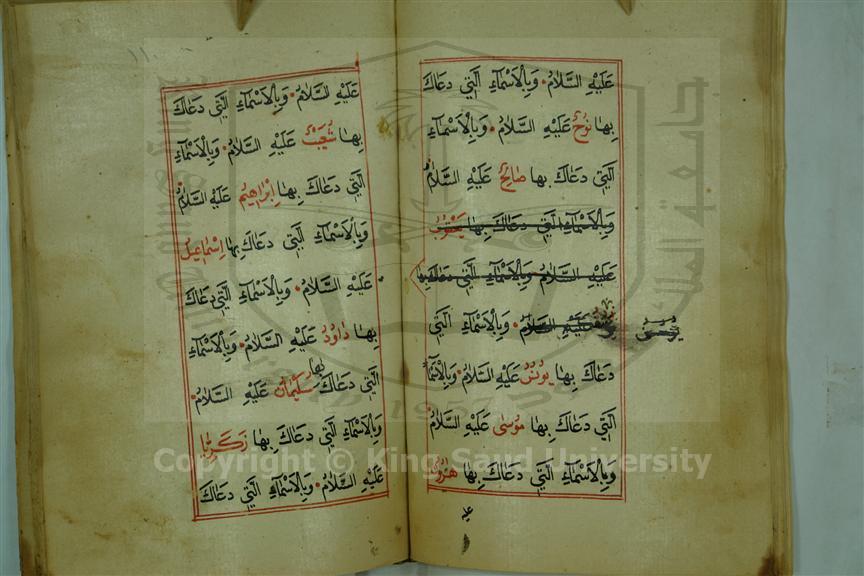 عَلَيْهِ السَّلَامُ وَبِالْاَسْمَاءِ الَّتِي دَعَاكَ
بِهَا نُوحٌ عَلَيْهِ السَّلَامُ وَبِالْاَسْمَاءِ
الَّتِي دَعَاكَ بِهَا صَالِحٌ عَلَيْهِ السَّلَامُ
وَبِالْاَسْمَاءِ الَّتِي دَعَاكَ بِهَا يَعْقُوبُ
عَلَيْهِ السَّلَامُ وَبِالْاَسْمَاءِ الَّتِي دَعَاكَ بِهَا
عَلَيْهِ السَّلَامُ وَبِالْاَسْمَاءِ الَّتِي
دَعَاكَ بِهَا يُونُسُ عَلَيْهِ السَّلَامُ وَبِالْاَسْمَاءِ
الَّتِي دَعَاكَ بِهَا مُوسَى عَلَيْهِ السَّلَامُ
وَبِالْاَسْمَاءِ الَّتِي دَعَاكَ بِهَا هٰرُونُ
عليه
عَلَيْهِ السَّلَامُ وَبِالْاَسْمَاءِ الَّتِي دَعَاكَ
بِهَا شُعَيْبٌ عَلَيْهِ السَّلَامُ وَبِالْاَسْمَاءِ
الَّتِي دَعَاكَ بِهَا اِبْرَاهِيمُ عَلَيْهِ السَّلَامُ
وَبِالْاَسْمَاءِ الَّتِي دَعَاكَ بِهَا اِسْمَاعِيلُ
عَلَيْهِ السَّلَامُ وَبِالْاَسْمَاءِ الَّتِي دَعَاكَ
بِهَا دَاوُدُ عَلَيْهِ السَّلَامُ وَبِالْاَسْمَاءِ
الَّتِي دَعَاكَ بِهَا سُلَيْمَانُ عَلَيْهِ السَّلَامُ
وَبِالْاَسْمَاءِ الَّتِي دَعَاكَ بِهَا زَكَرِيَّا
عَلَيْهِ السَّلَامُ وَبِالْاَسْمَاءِ الَّتِي دَعَاكَ
Copyright © King Saud University
1957